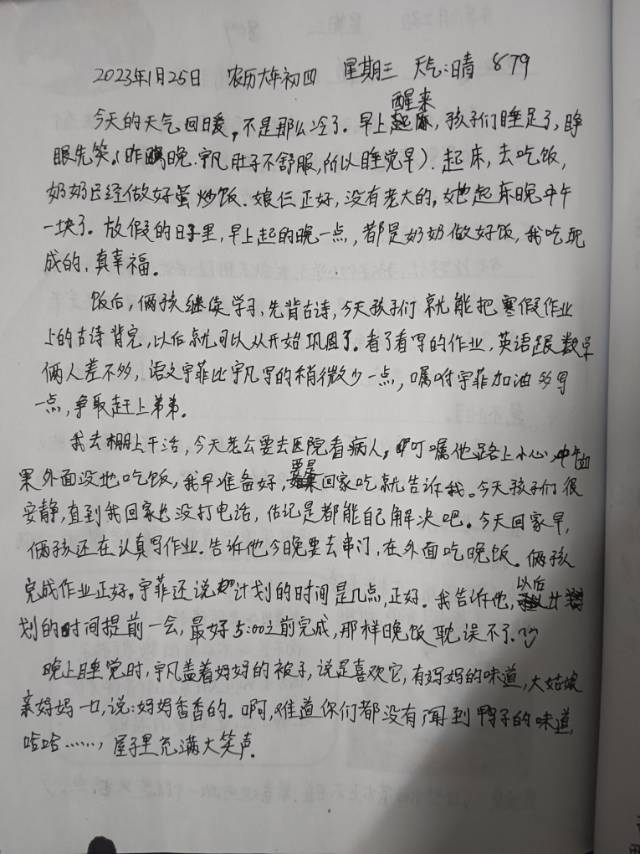 2023年1月25日 农历大年初四 星期三 天气:晴 879
今天的天气回暖,不是那么冷了。早上醒来,孩子们睡足了,睁
眼先笑。(昨晚,宇凡肚子不舒服,所以睡觉早)。起床,去吃饭,
奶奶已经做好蛋炒饭。娘仨正好,没有老大的,她起床晚中午
一块了。放假的日子里,早上起的晚一点,都是奶奶做好饭,我吃现
成的,真幸福。
饭后,俩孩继续学习,先背古诗,今天孩子们就能把寒假作业
上的古诗背完,以后就可以从开始巩固了。看了看写的作业,英语跟数学
俩人差不多,语文宇菲比宇凡写的稍微少一点,嘱咐宇菲加油多写
一点,争取赶上弟弟。
我去棚上干活,今天老公要去医院看病人,叮嘱他路上小心,中午如
果外面没地吃饭,我早准备好,要是回家吃就告诉我。今天孩子们很
安静,直到我回家也没打电话,估记是都能自己解决吧。今天回家早,
俩孩还在认真写作业。告诉他今晚要去串门,在外面吃晚饭。俩孩
完成作业正好。宇菲还说计划的时间是几点,正好。我告诉他,以后计
划的时间提前一会,最好5:00之前完成,那样晚饭耽误不了。
晚上睡觉时,宇凡盖着妈妈的被子,说是喜欢它,有妈妈的味道,大姑娘
亲妈妈一口,说:妈妈香香的。啊,难道你们都没有闻到鸭子的味道,
哈哈……,屋子里充满大笑声。